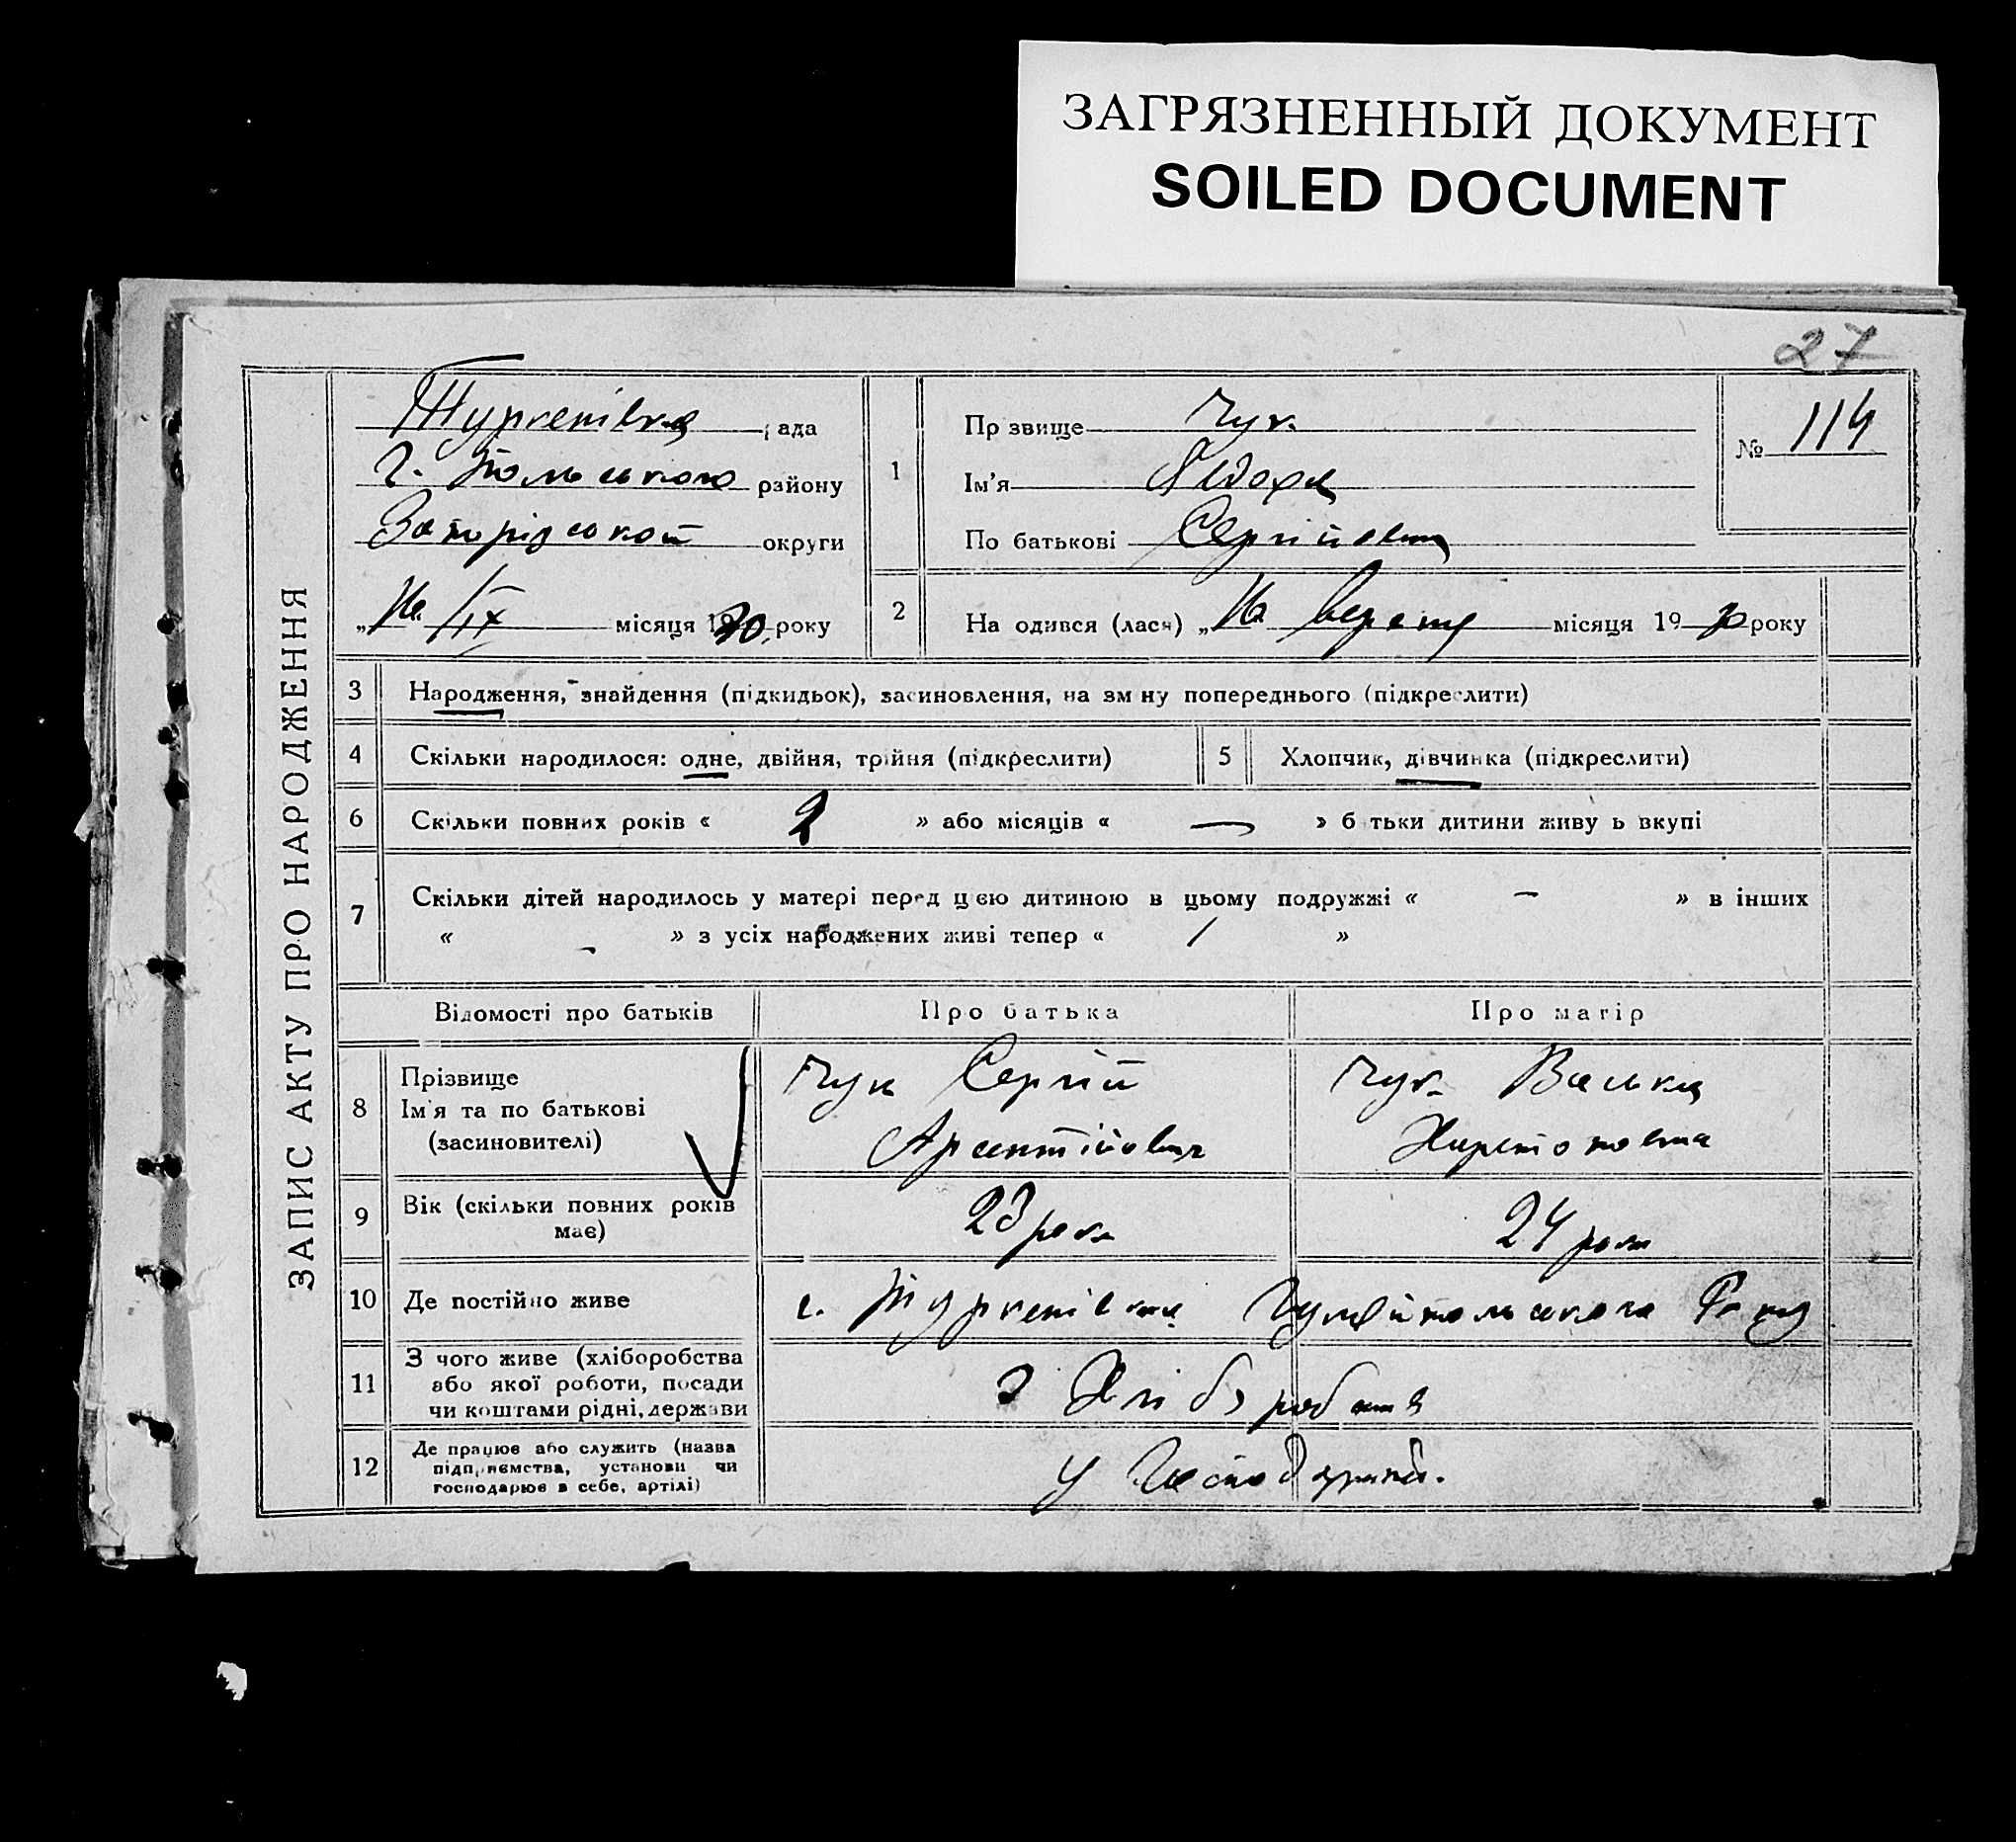 ЗАГРЯЗНЕННЫЙ ДОКУМЕНТ
SOILED DOCUMENT
27
ЗАПИС АКТУ ПРО НАРОДЖЕННЯ
Туркенівка ада
району
округи
IX місяця 1930 року
1
Пр звище Чук
Ім'я
По батькові Сергіївна
№ 114
2
На одився (лася) місяця 1930 року
3 Народження, знайдення (підкидьок), засиновлення, на зм ну попереднього (підкреслити)
4 Скільки народилося: одне, двійня, трійня (підкреслити)
5 Хлопчик, дівчинка (підкреслити)
6 Скільки повних років « 2 » або місяців « — » б тьки дитини живу ь вкупі
7 Скільки дітей народилось у матері перед цією дитиною в цьому подружжі « — » в інших
« - » з усіх народжених живі тепер « / »
Відомості про батьків Про батька Про матір
8
Прізвище
Ім'я та по батькові
(засиновителі)
Чук Сергій
Чук
9 Вік (скільки повних років
має)
23 роки
24 роки
10 Де постійно живе
с. Туркенівка Гуляйпольського р-ну
11 З чого живе (хліборобства
або якої роботи, посади
чи коштами рідні, держави
з Хліборобства
12 Де працює або служить (назва
підприємства, установи чи
господарює в себе, артілі)
у